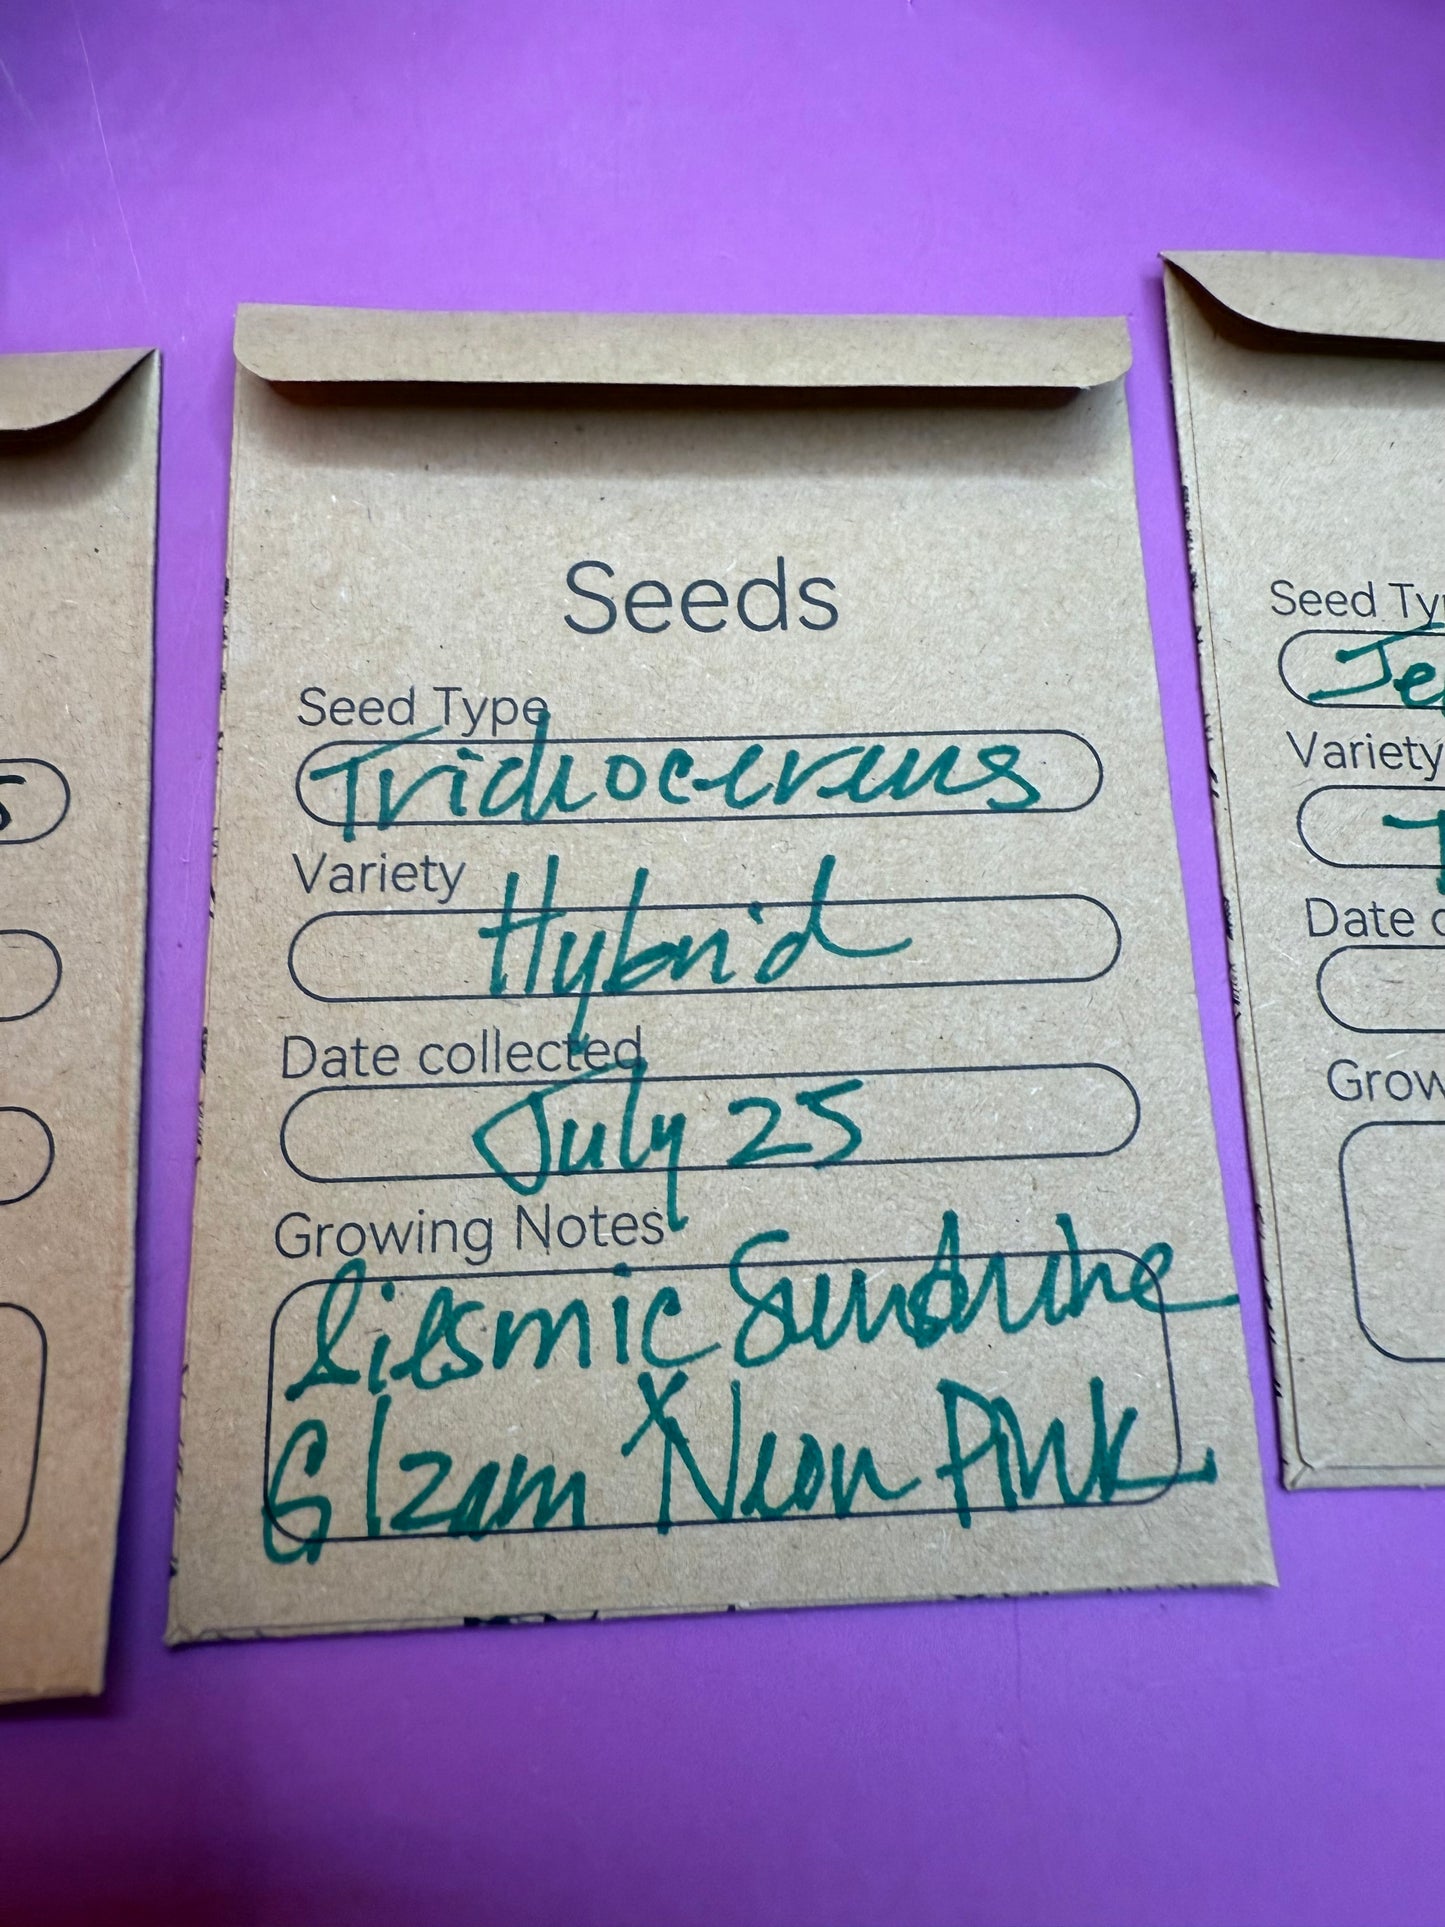 Seeds
Seed Type
Trichocereus
Variety
Hybrid
Date collected
July 25
Growing Notes
Siesmic Sunshine
X
Glzam Neon Pink
5
Seed Ty
Je
Variety
T
Date c
Grow